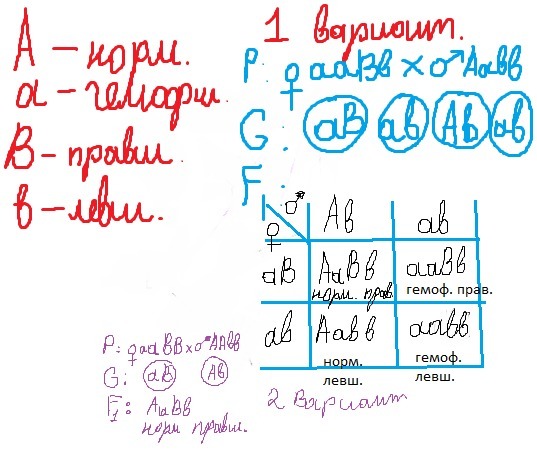 А – норм.
а – гемофил.
В – правш.
в – левш.
1 вариант.
P: ♀ ааВв × ♂ Аавв
G: аВ ав Ав ав
F1:
♂ Ав ав
♀
аВ АаВв ааВв
норм. прав. гемоф. прав.
ав Аавв аавв
норм. левш. гемоф. левш.
P: ♀ ааВВ × ♂ ААвв
G: аВ Ав
F1: АаВв
норм правш.
2 Вариант